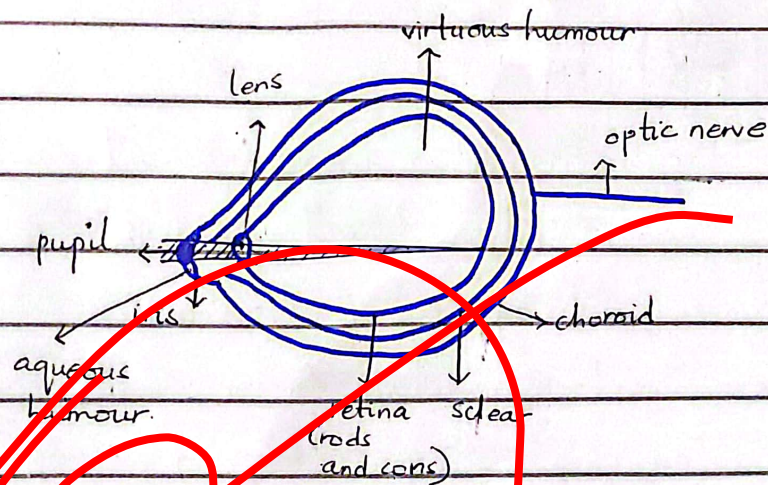 virtuous humour
lens
optic nerve
pupil
iris
choroid
aqueous
humour.
retina
sclear
(rods
and cons)